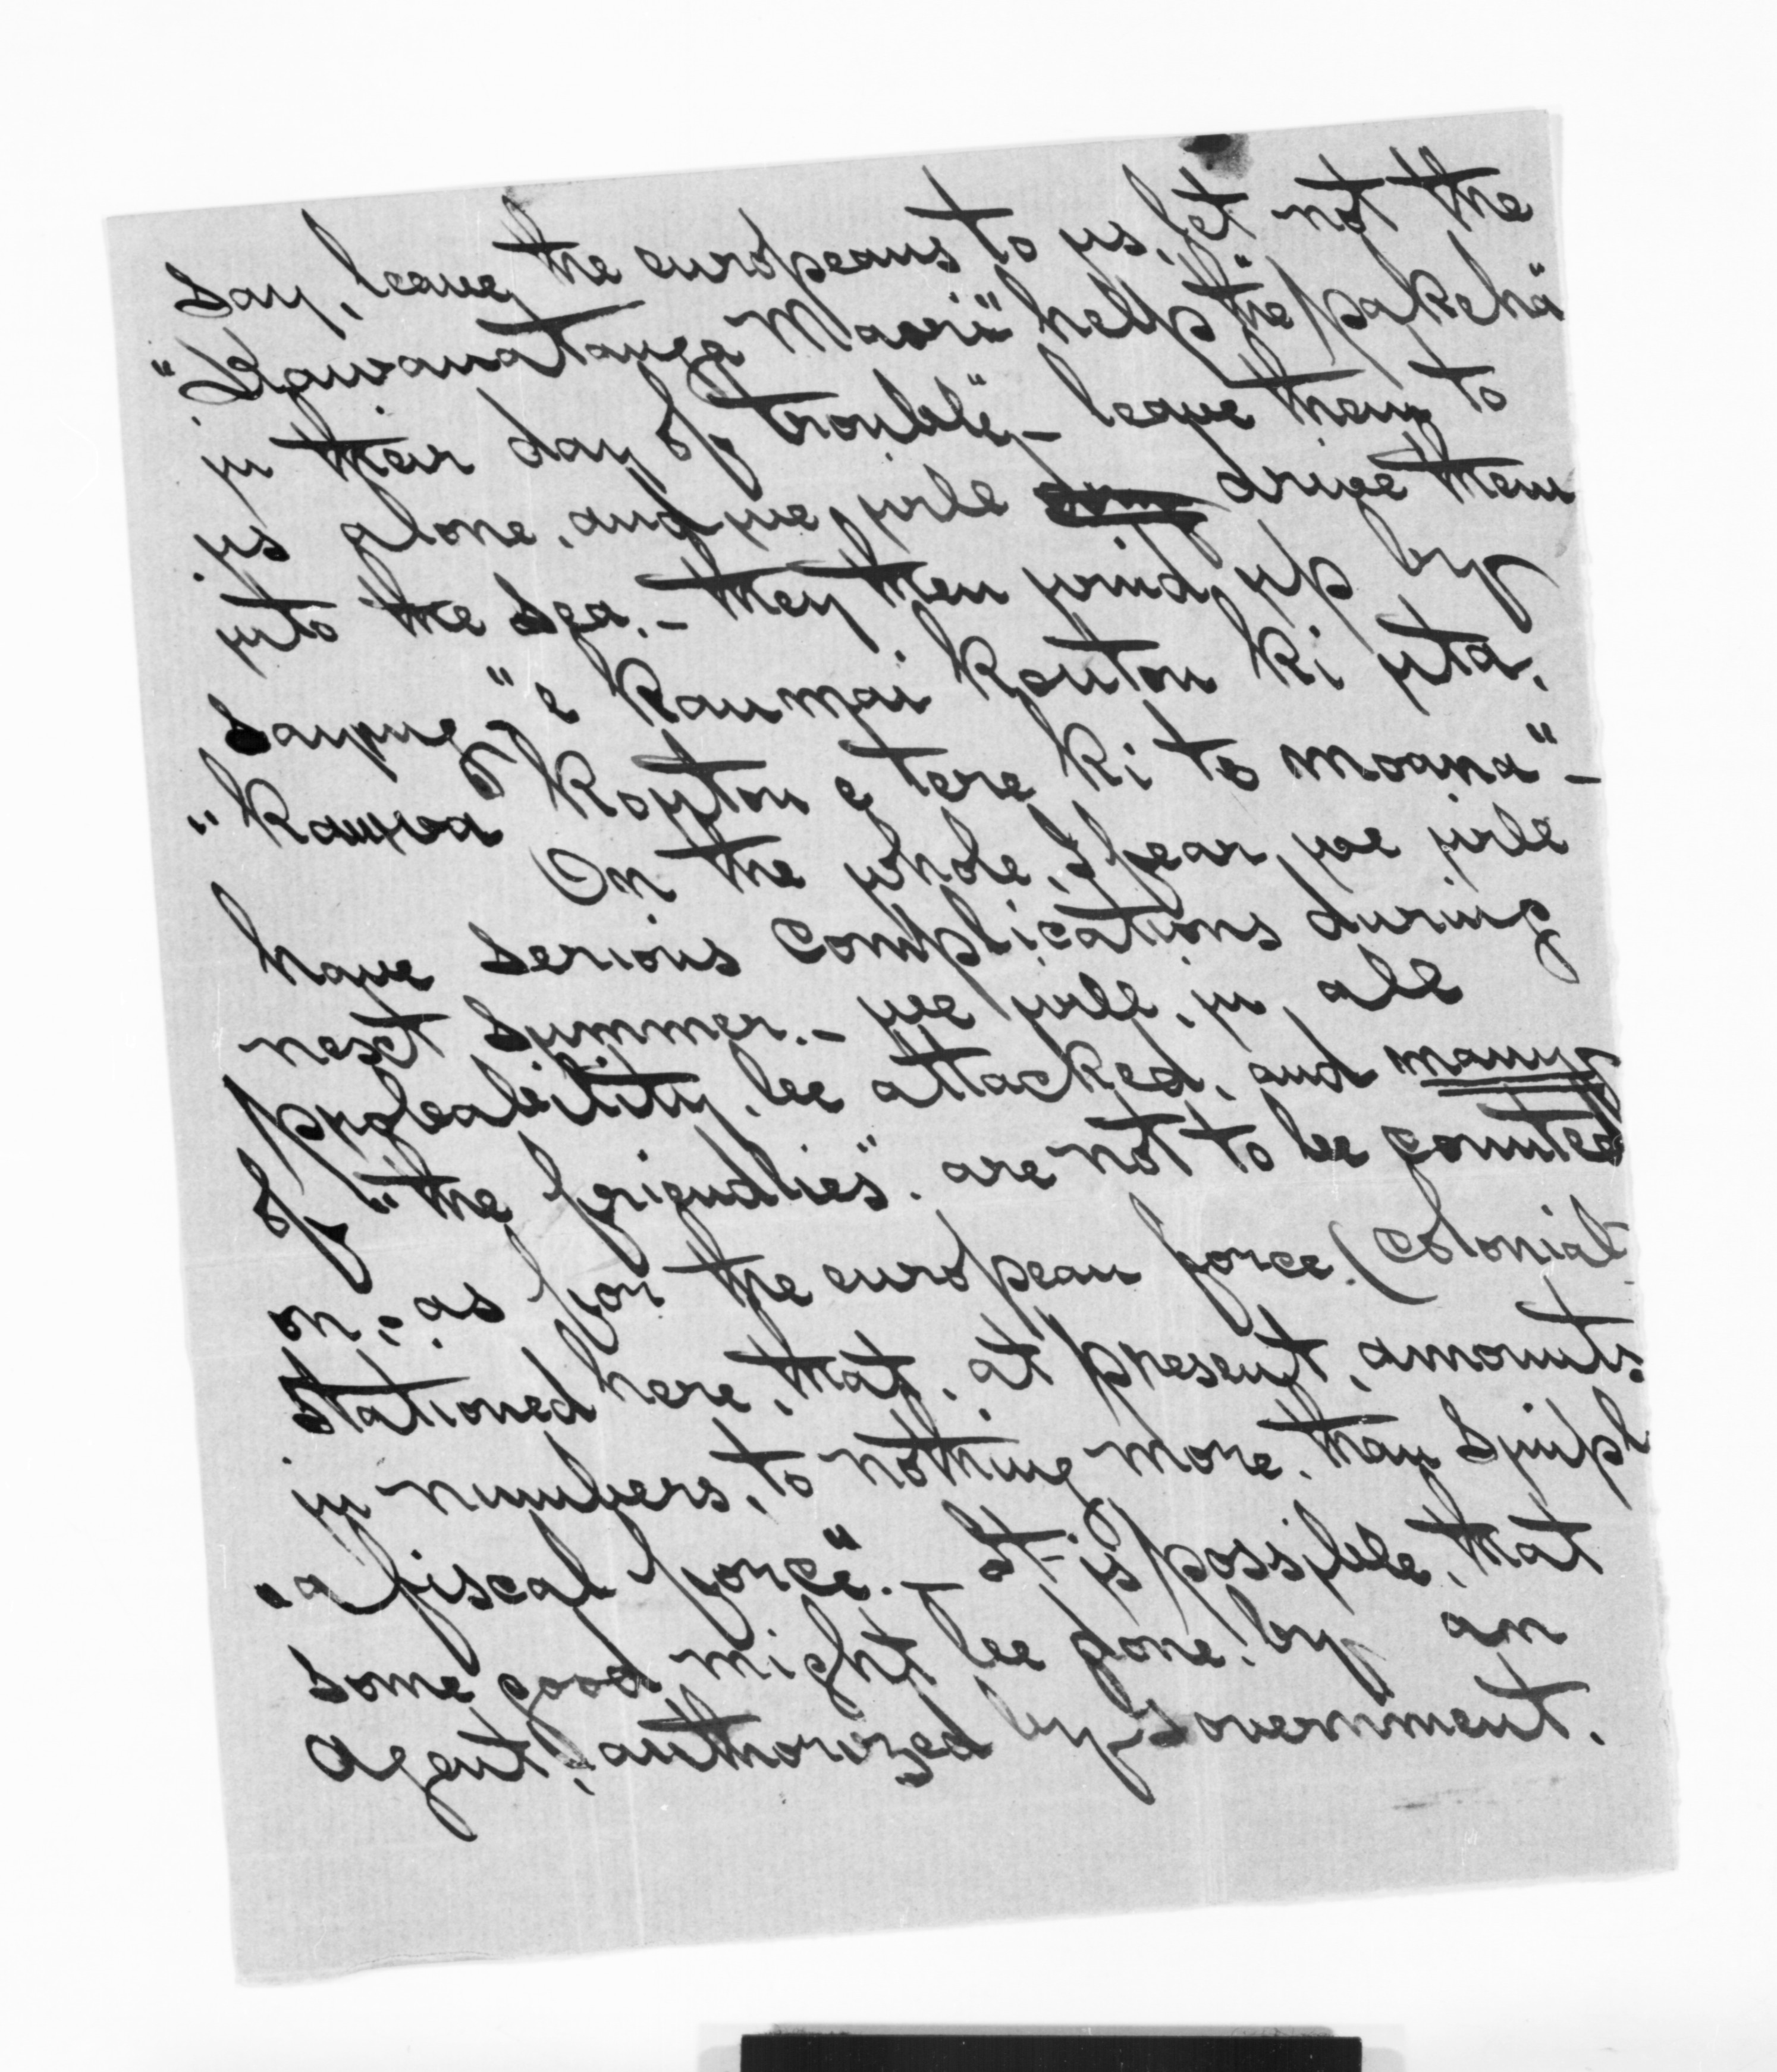 say, leave the europeans to us, let not the
"Kawanatanga Maori" help "the pakeha"
in their day of "trouble", - leave them to
us alone, and we will drive them
into the sea. - they then wind up by
saying, "e kau mai koutou ki uta,
"kauwa koutou e tere ki te moana" -
On the whole, I fear, we will
have serious complications during
next summer. - we will, in all
probability, be attacked, and many
of "the friendlies", are not to be counted
on, - as for the european force, (colonial
stationed here, that, at present, amounts
in numbers, to nothing more, than simpl
"a fiscal force". - It is possible, that
some good might be done, by an
Agent, authorized by Government.